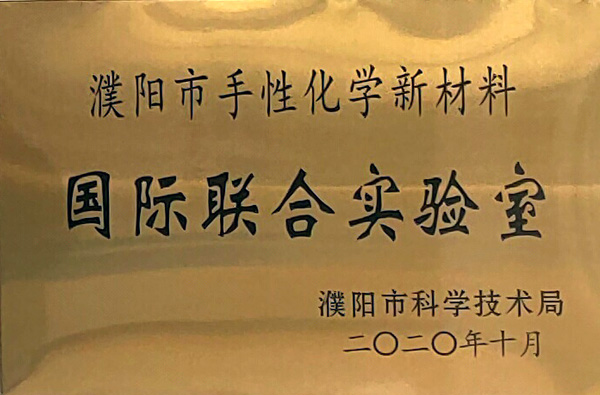 濮阳市手性化学新材料
国际联合实验室
濮阳市科学技术局
二〇二〇年十月